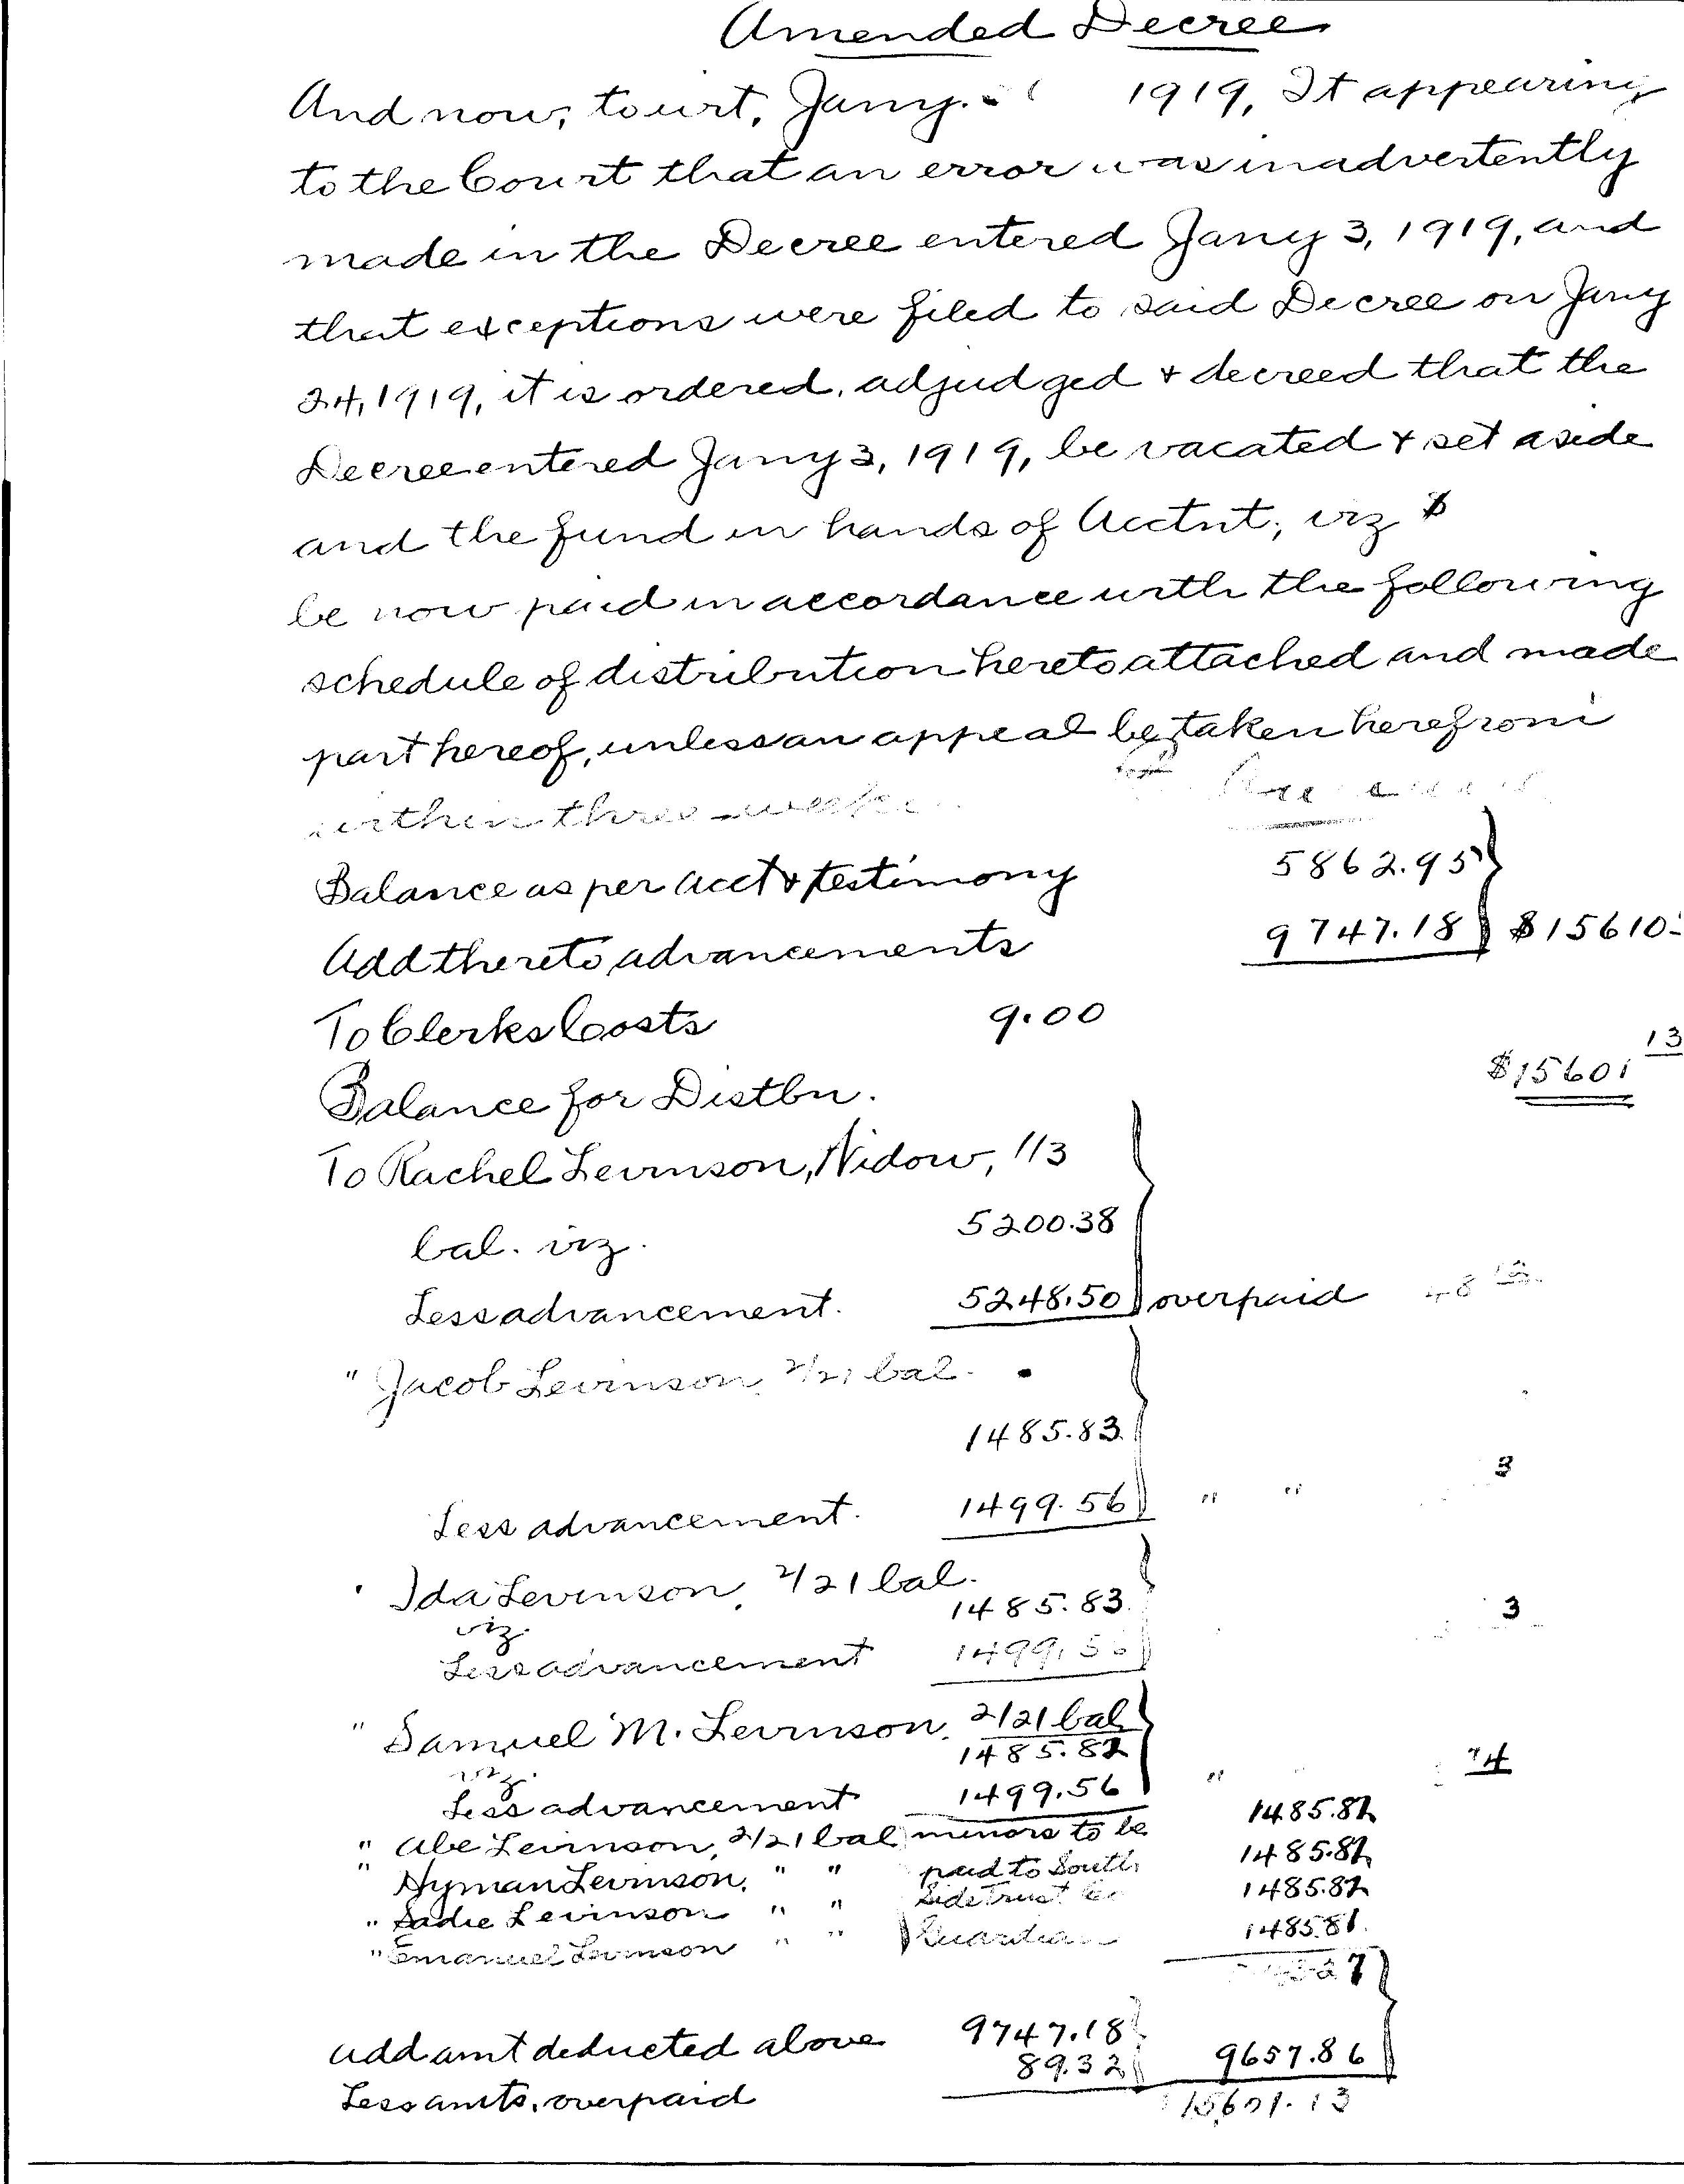 Amended Decree
And now, to wit, Jany. 1919, It appearing
to the Court that an error was inadvertently
made in the Decree entered Jany 3, 1919, and
that exceptions were filed to said Decree on Jany
24, 1919, it is ordered, adjudged & decreed that the
Decree entered Jany 3, 1919, be vacated & set aside
and the fund in hands of Acctnt, viz $
be now paid in accordance with the following
schedule of distribution hereto attached and made
part hereof, unless an appeal be taken herefrom
within three weeks
Balance as per acct & testimony 5862.95
Add thereto advancements 9747.18 $15610
To Clerks Costs 9.00
Balance for Distbn. $15601 13
To Rachel Levinson, Widow, 1/3
bal. viz. 5200.38
Less advancement. 5248.50 overpaid 48 12
" Jacob Levinson, 2/21 bal.
1485.83
Less advancement. 1499.56 " " 3
Ida Levinson, 2/21 bal.
viz. 1485.83
Less advancement 1499.56 3
" Samuel M. Levinson, 2/21 bal
viz. 1485.82
Less advancement 1499.56 " 74
" Abe Levinson, 2/21 bal minors to be 1485.82
" Hyman Levinson, " " paid to South 1485.82
" Sadie Levinson " " Side Trust Co 1485.82
" Emanuel Levinson " " Guardian 1485.81
27
Add amt deducted above 9747.18
Less amts. overpaid 89.32 9657.86
15601.13